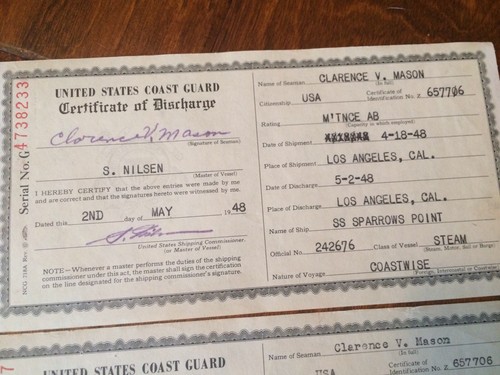 UNITED STATES COAST GUARD
Certificate of Discharge
Serial No. G 4738233
Clarence V. Mason
(Signature of Seaman)
S. NILSEN
(Master of Vessel)
I HEREBY CERTIFY that the above entries were made by me
and are correct and that the signatures hereto were witnessed by me.
Dated this 2ND day of MAY 1948
(United States Shipping Commissioner
or Master of Vessel)
NOTE—Whenever a master performs the duties of the shipping
commissioner under this act, the master shall sign the certification
on the line designated for the shipping commissioner's signature.
Name of Seaman CLARENCE V. MASON
(In full)
Citizenship USA Certificate of
Identification No. Z 657706
Rating M'TNCE AB
(Capacity in which employed)
Date of Shipment 4-18-48
Place of Shipment LOS ANGELES, CAL.
Date of Discharge 5-2-48
Place of Discharge LOS ANGELES, CAL.
Name of Ship SS SPARROWS POINT
Official No 242676 Class of Vessel STEAM
(Steam, Motor, Sail or Barge)
Nature of Voyage COASTWISE
(Foreign, Intercoastal or
UNITED STATES COAST GUARD
Name of Seaman Clarence V. Mason
(In full)
USA Certificate of
Identification No. Z 657706